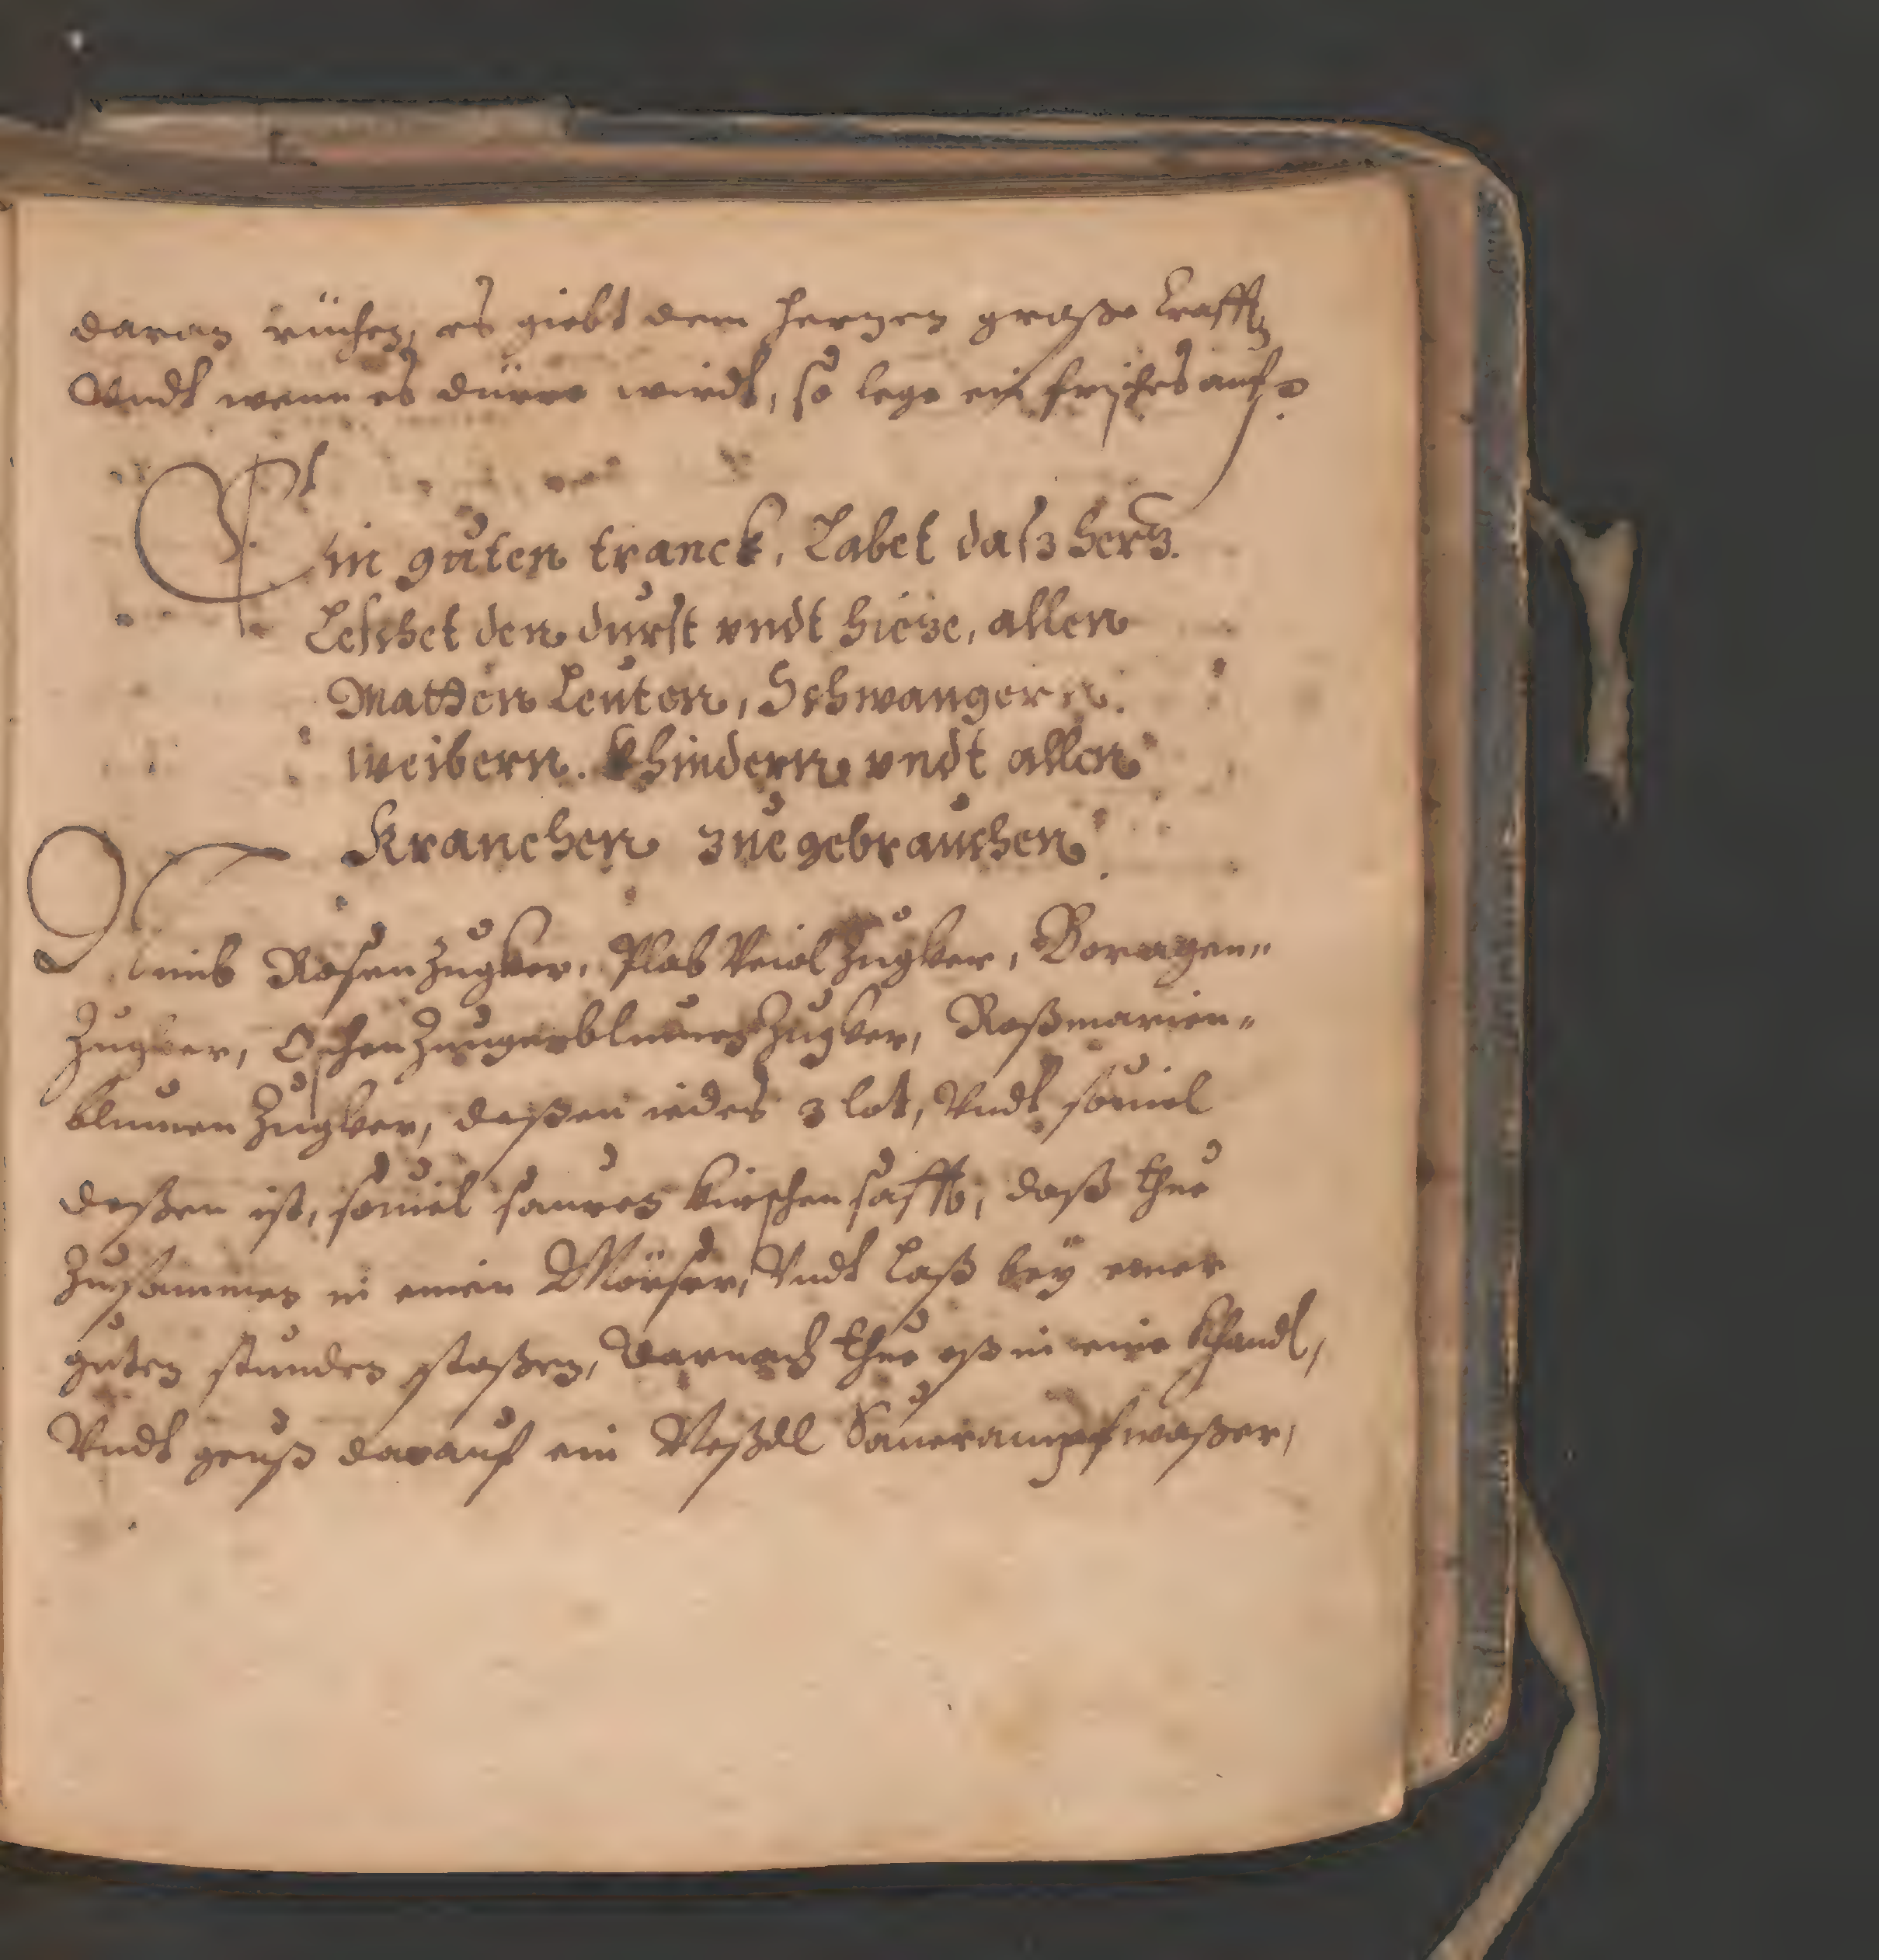 daran rüchen, es giebt dem hertzen grosse krafft,
Vndt wenn es dürre wirdt, so lege ein frisches auf.
Ein guten tranck, Labet dasz hertz.
Leschet den durst vndt hieze, allen
Matten Leuten, Schwangern.
weibern. Khindern vndt allen
Kranchen zue gebrauchen.
Nimb Rosenzugker, Plab Veiol Zugker, Boragen„
Zugker, Ochsenzungenblumen Zugker, Roßmarien„
blumen Zugker, deßen iedes 3 lot, Vndt souiel
deßen ist, souiel sauren kirschensafft, daß thue
Zusammen in einen Mörser, Vndt Laß bey einer
guten stunden stoßen, darnach thue eß in eine Khandl,
Vndt geuß darauf ein Neßdl Sauerampfwaßer,